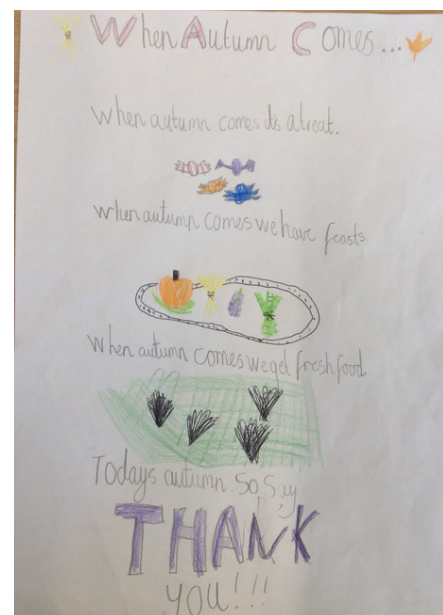 When Autumn Comes...
When autumn comes its a treat.
When autumn comes we have feasts.
When autumn comes we get fresh food.
Todays autumn so Say
THANK
YOU!!!